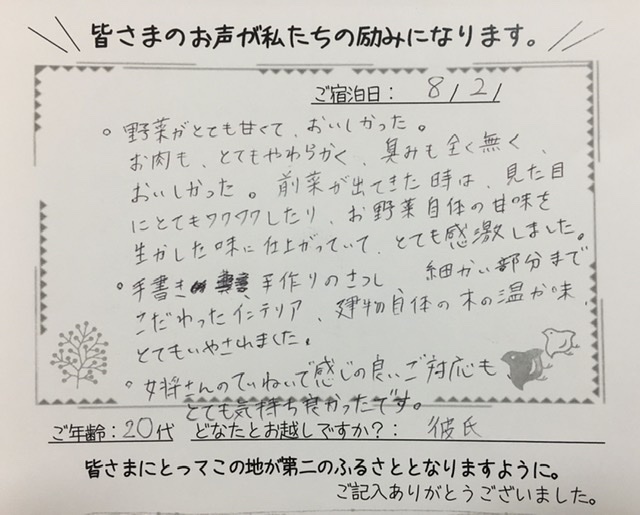 皆さまのお声が私たちの励みになります。
ご宿泊日: 8/21
。野菜がとても甘くて、おいしかった。
お肉も、とてもやわらかく、臭みも全く無く、
おいしかった。前菜が出てきた時は、見た目
にとてもワクワクしたり、お野菜自体の甘味を
生かした味に仕上がっていて、とても感激しました。
。手書き 手作りのさっし、細かい部分まで
こだわったインテリア、建物自体の木の温か味、
とてもいやされました。
。女将さんのていねいで感じの良いご対応も
とても気持ち良かったです。
ご年齢:20代 どなたとお越しですか?: 彼氏
皆さまにとってこの地が第二のふるさととなりますように。
ご記入ありがとうございました。